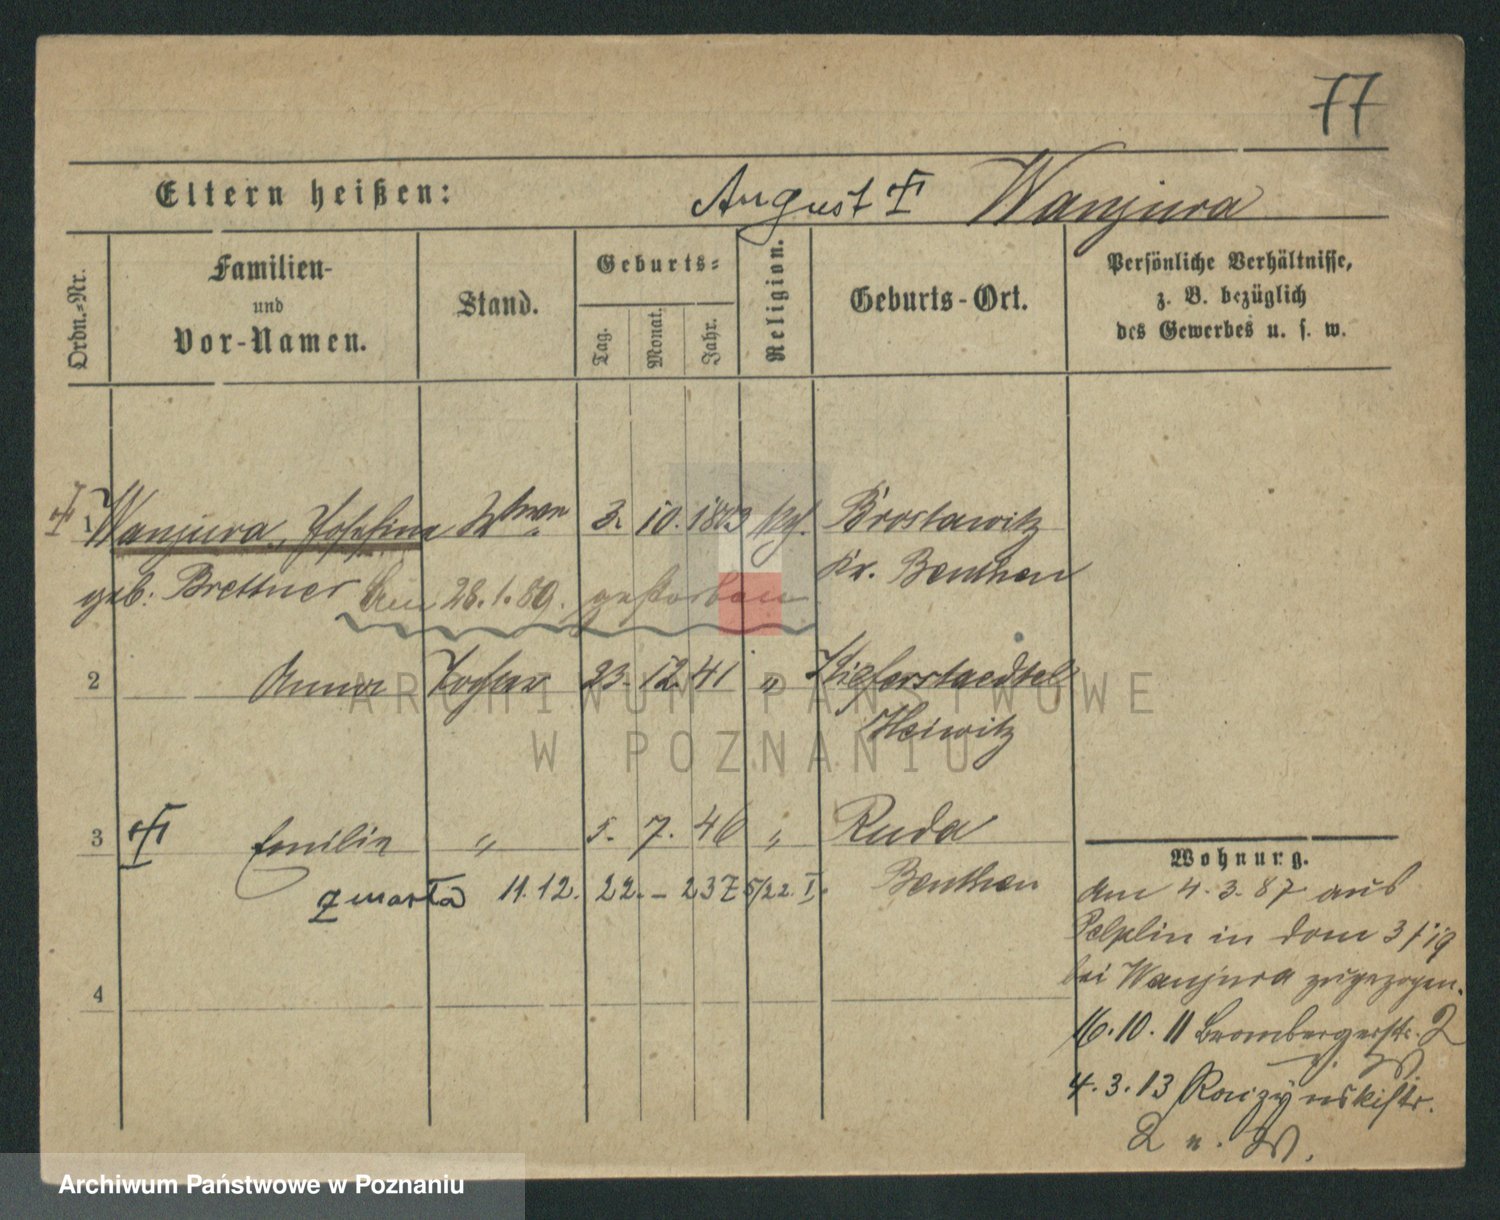 77
Eltern heißen: August Wanjura
Ordn.-Nr.
Familien-
und
Vor-Namen.
Stand.
Geburts-
Tag.
Monat.
Jahr.
Religion.
Geburts-Ort.
Persönliche Verhältnisse,
z. B. bezüglich
des Gewerbes u. s. w.
1 Wanjura, Josefine Wtwe 3. 10. 1813 kth. Brostawitz
Kr. Beuthen
geb. Brettner Am 28.1.89. gestorben
2 Anna Tochter 23. 12. 41 " Kieferstaedtel
Gleiwitz
3 Emilie " 5. 7. 46 " Ruda
Beuthen
zmarła 11.12. 22. – 237 5/22. I.
4
Wohnung.
Am 4.3.87 aus
Pelplin in Dom
bei Wanjura zugezogen.
16.10.11 Brombergerstr. 2
u. W.
4.3.13 Raczynskistr.
2 u. W.
ARCHIWUM PAŃSTWOWE
W POZNANIU
Archiwum Państwowe w Poznaniu